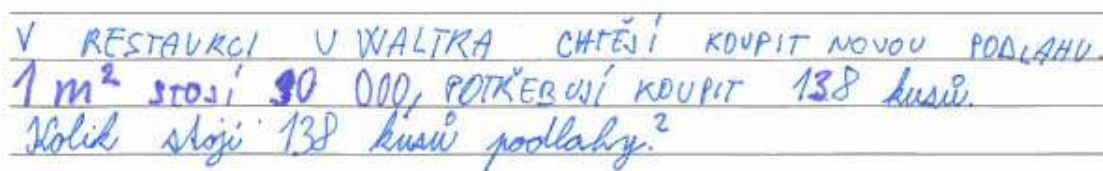 V RESTAURCI U WALTRA CHTĚJÍ KOUPIT NOVOU PODLAHU.
1 m² STOJÍ 000, POTŘEBUJÍ KOUPIT 138 kusů.
Kolik stojí 138 kusů podlahy?